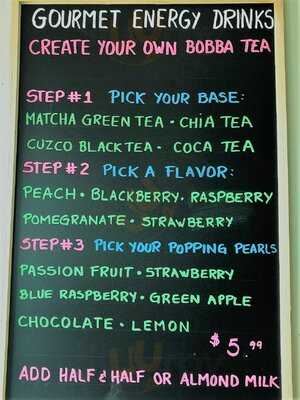 GOURMET ENERGY DRINKS
CREATE YOUR OWN BOBBA TEA
STEP #1 PICK YOUR BASE:
MATCHA GREEN TEA · CHIA TEA
CUZCO BLACK TEA · COCA TEA
STEP #2 PICK A FLAVOR:
PEACH · BLACKBERRY · RASPBERRY
POMEGRANATE · STRAWBERRY
STEP #3 PICK YOUR POPPING PEARLS
PASSION FRUIT · STRAWBERRY
BLUE RASPBERRY · GREEN APPLE
CHOCOLATE · LEMON
$5.99
ADD HALF & HALF OR ALMOND MILK